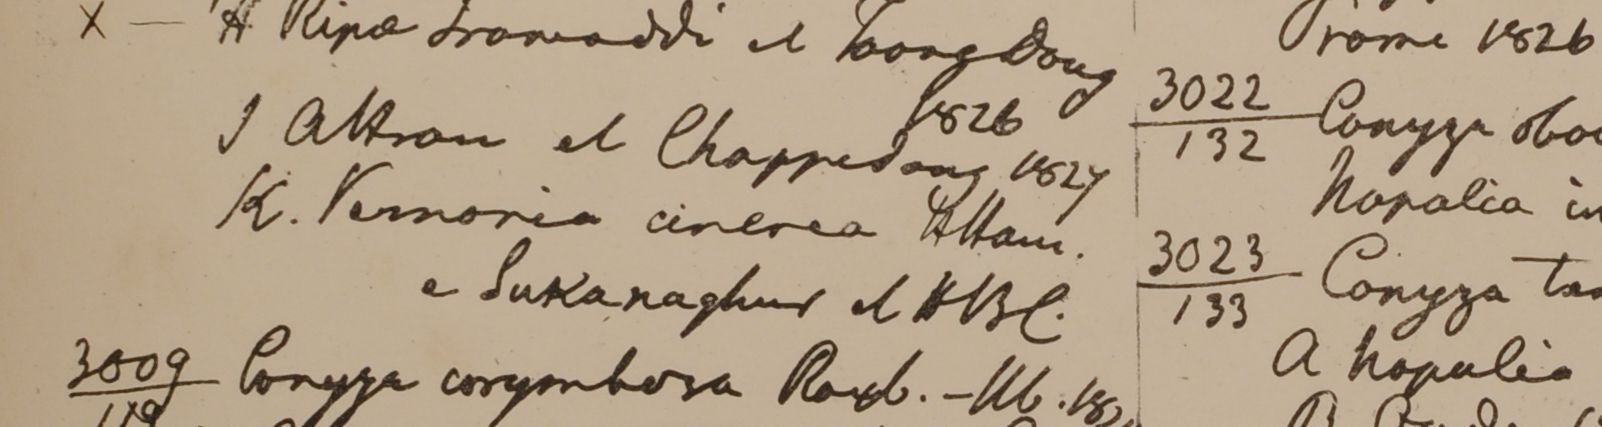 X — H Ripæ Irawaddi et Toong Dong
1826
I Attran et Chappedong 1827
K. Vernonia cinerea HHam.
e Sukanaghur et HBC.
3009 Conyza corymbosa Roxb. —
119
Prome 1826
3022 Conyza
132
Napalia in
3023 Conyza
133
A Napalia